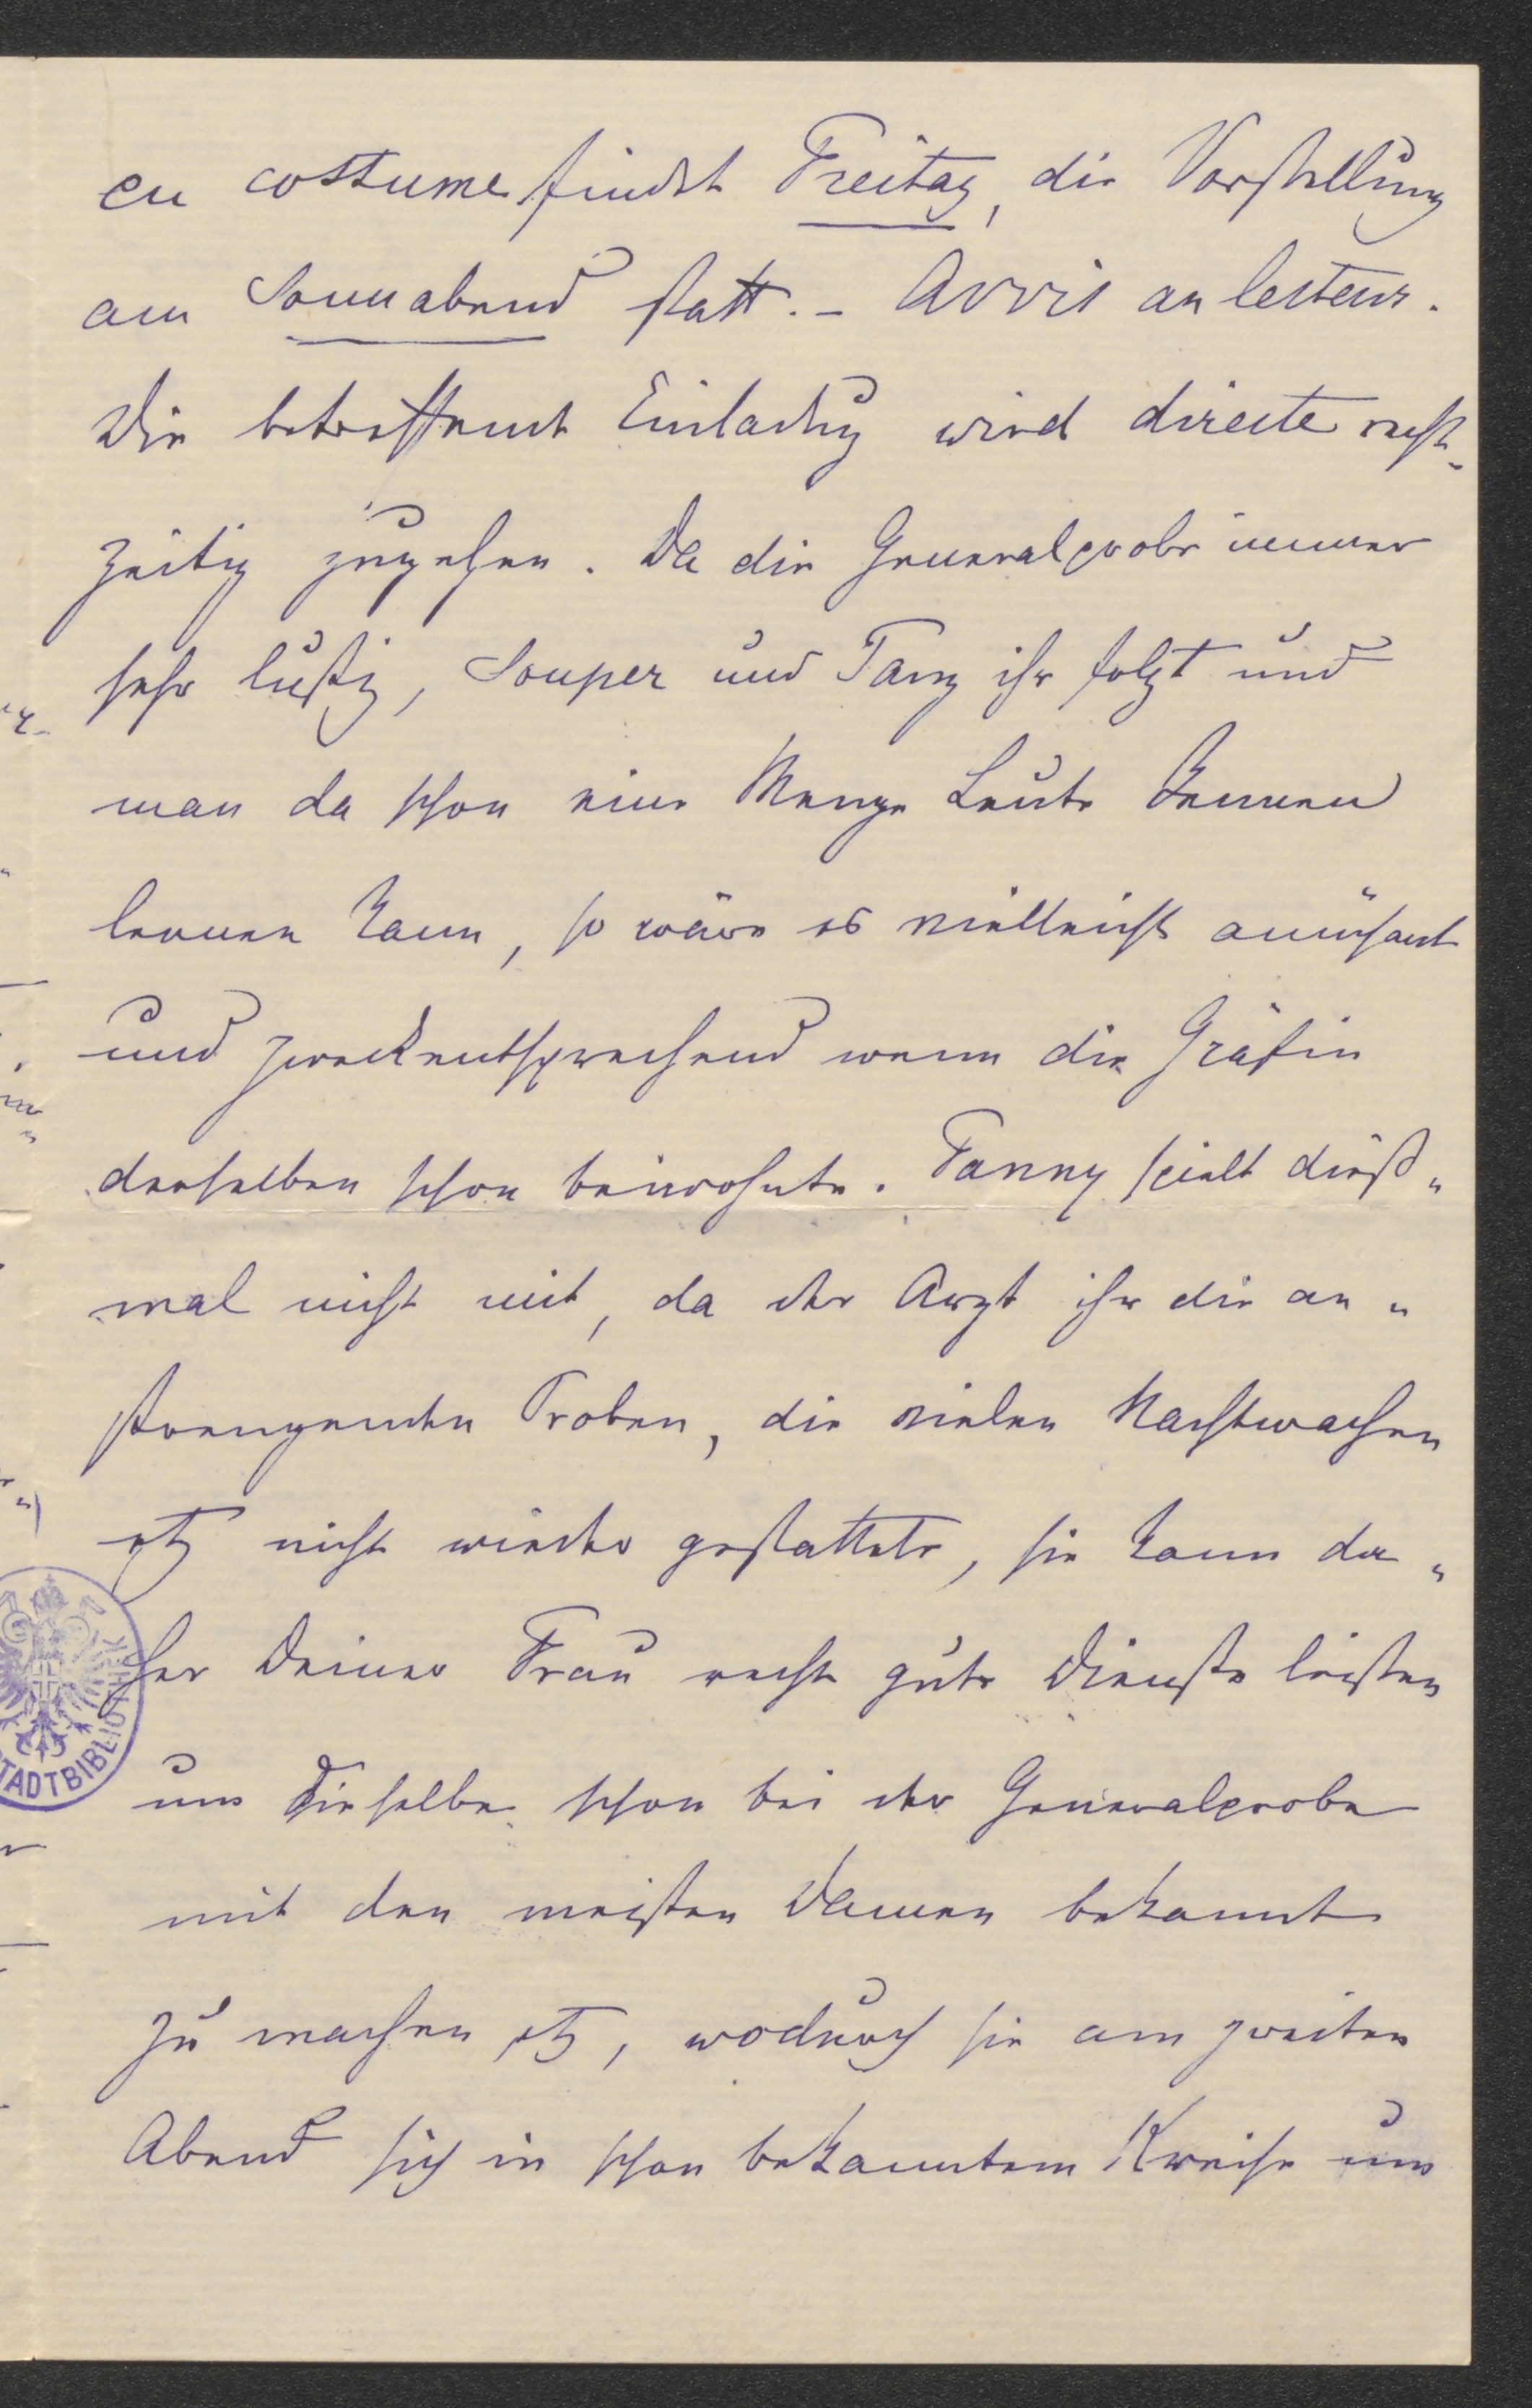 en costume findet Freitag, die Vorstellung
am Sonnabend statt. – Avvis au lecteur.
Die betreffende Einladung wird directe recht-
zeitig zugehen. Da die Generalprobe immer
sehr lustig, Souper und Tanz ihr folgt und
man da schon eine Menge Leute kennen
lernen kann, so wäre es vielleicht amüsant
und zweckentsprechend wenn die Gräfin
derselben schon beiwohnte. Fanny spielt dieß-
mal nicht mit, da der Arzt ihr die an-
strengenden Proben, die vielen Nachtwachen
etz nicht wieder gestattete, sie kann da-
her Deiner Frau recht gute Dienste leisten
um dieselbe schon bei der Generalprobe
mit den meisten Damen bekannt
zu machen etz, wodurch sie am zweiten
Abend sich in schon bekanntem Kreise um
STADTBIBLIOTHEK